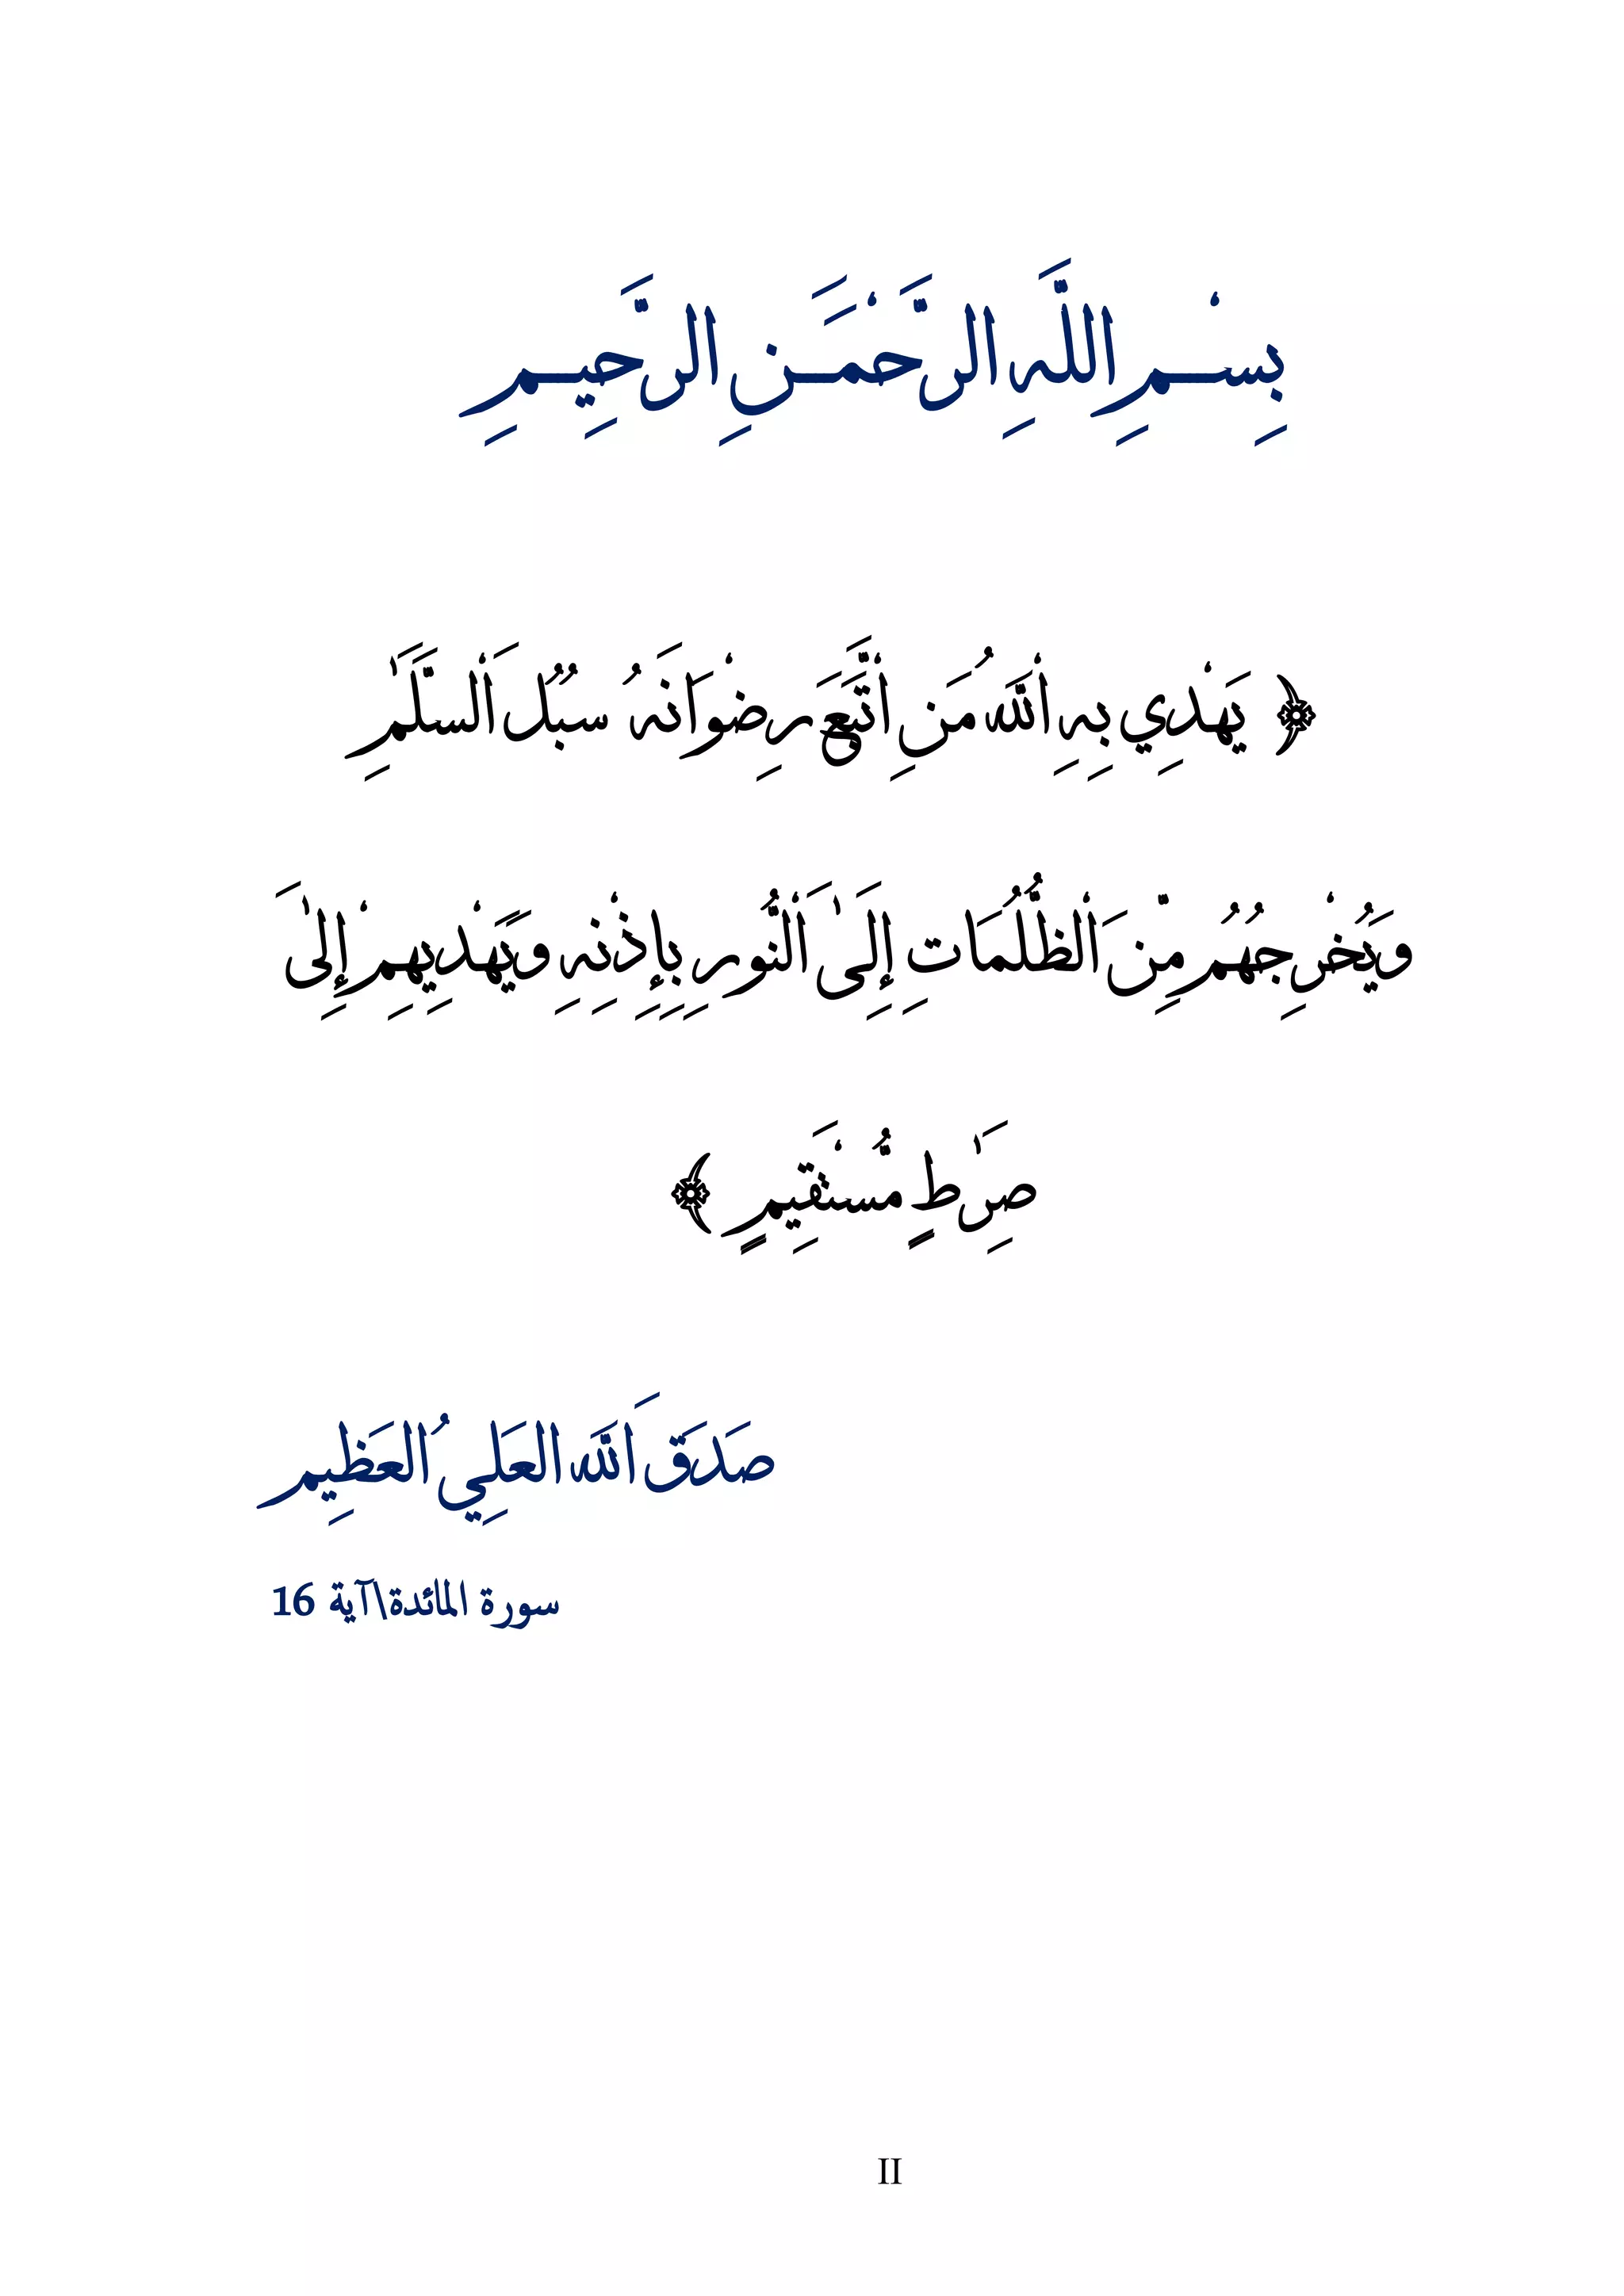 بِسْمِ اللَّهِ الرَّحْمَنِ الرَّحِيمِ
﴿ يَهْدِي بِهِ ٱللَّهُ مَنِ ٱتَّبَعَ رِضْوَانَهُ سُبُلَ ٱلسَّلَٰمِ
وَيُخْرِجُهُم مِّنَ ٱلظُّلُمَاتِ إِلَى ٱلنُّورِ بِإِذْنِهِ وَيَهْدِيهِمْ إِلَىٰ
صِرَٰطٍ مُّسْتَقِيمٍ ﴾
صَدَقَ اَللَّه العَلِيُ العَظِيم
سورة المائدة\آية 16
II